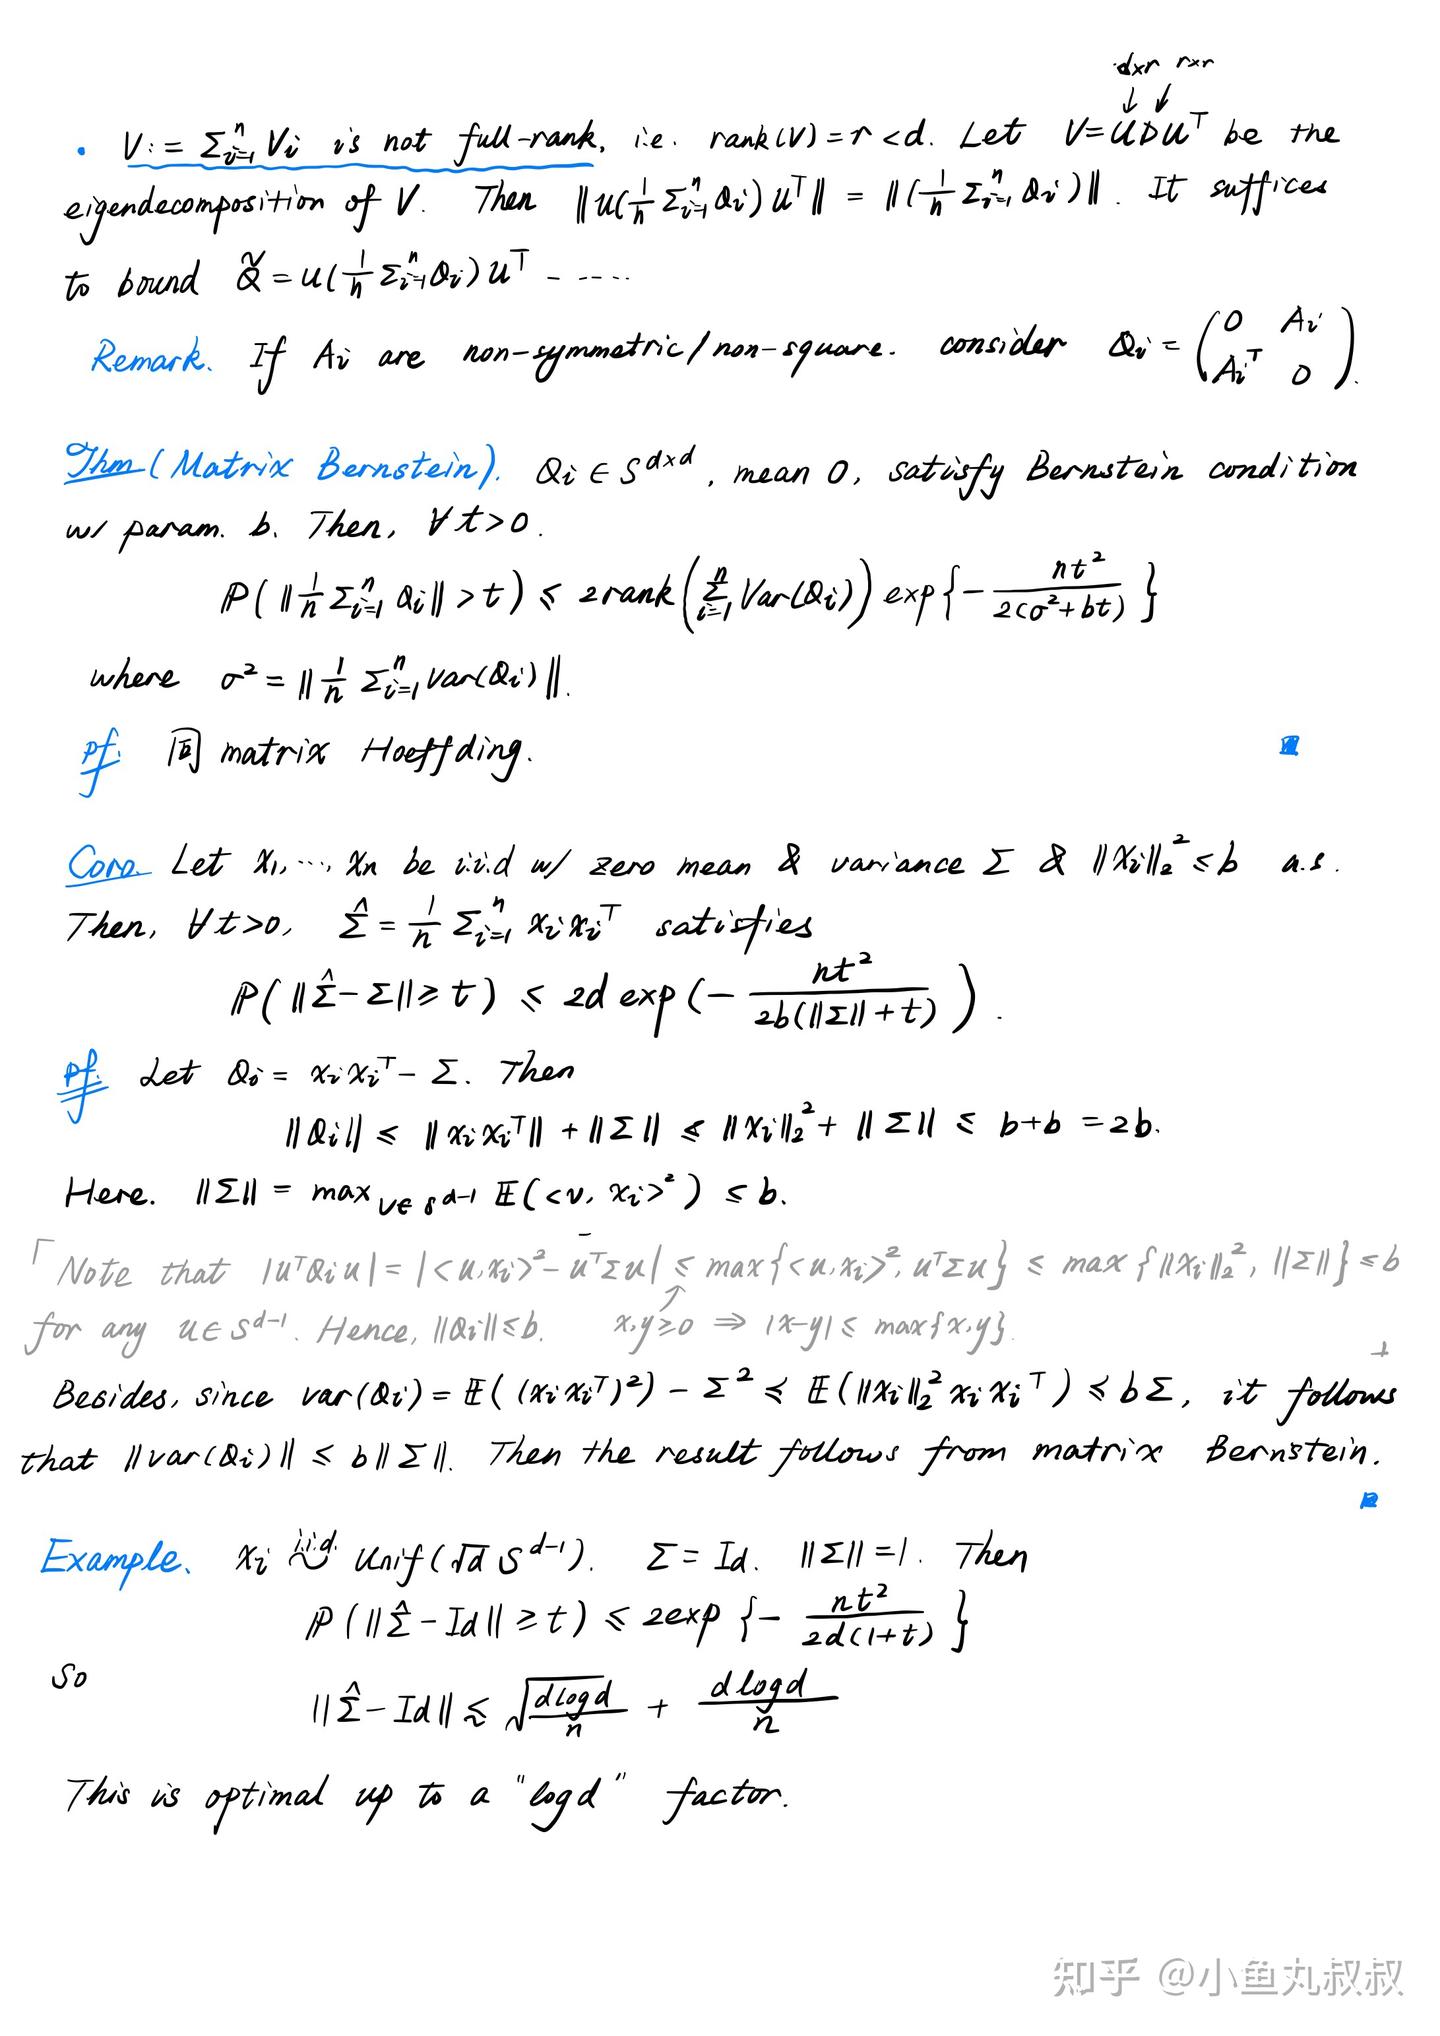 dxr rxr
• V := Σ_{i=1}^n V_i is not full-rank, i.e. rank(V) = r < d. Let V = UDU^T be the
eigendecomposition of V. Then ‖U(1/n Σ_{i=1}^n Q_i)U^T‖ = ‖(1/n Σ_{i=1}^n Q_i)‖. It suffices
to bound Q̃ = U(1/n Σ_{i=1}^n Q_i)U^T - ----
Remark. If A_i are non-symmetric/non-square. consider Q_i = (0 A_i
A_i^T 0).
Thm (Matrix Bernstein). Q_i ∈ S^{d×d}, mean 0, satisfy Bernstein condition
w/ param. b. Then, ∀t>0.
ℙ(‖1/n Σ_{i=1}^n Q_i‖ > t) ≤ 2rank(Σ_{i=1}^n Var(Q_i)) exp{- nt²/2(σ²+bt)}
where σ² = ‖1/n Σ_{i=1}^n Var(Q_i)‖.
pf. 同 matrix Hoeffding.
Coro. Let x_1, ···, x_n be i.i.d w/ zero mean & variance Σ & ‖x_i‖_2² ≤ b a.s.
Then, ∀t>0, Σ̂ = 1/n Σ_{i=1}^n x_i x_i^T satisfies
ℙ(‖Σ̂ - Σ‖ ≥ t) ≤ 2d exp(- nt²/2b(‖Σ‖+t)).
pf. Let Q_i = x_i x_i^T - Σ. Then
‖Q_i‖ ≤ ‖x_i x_i^T‖ + ‖Σ‖ ≤ ‖x_i‖_2² + ‖Σ‖ ≤ b+b = 2b.
Here. ‖Σ‖ = max_{v∈S^{d-1}} 𝔼(<v, x_i>²) ≤ b.
「Note that |u^T Q_i u| = |<u,x_i>² - u^TΣu| ≤ max{<u,x_i>², u^TΣu} ≤ max{‖x_i‖_2², ‖Σ‖} ≤ b
for any u∈S^{d-1}. Hence, ‖Q_i‖≤b. x,y≥0 ⇒ |x-y| ≤ max{x,y}. 」
Besides, since var(Q_i) = 𝔼((x_i x_i^T)²) - Σ² ≼ 𝔼(‖x_i‖_2² x_i x_i^T) ≼ bΣ, it follows
that ‖var(Q_i)‖ ≤ b‖Σ‖. Then the result follows from matrix Bernstein.
Example. x_i i.i.d. ~ Unif(√d S^{d-1}). Σ = Id. ‖Σ‖ = 1. Then
ℙ(‖Σ̂ - Id‖ ≥ t) ≤ 2exp{- nt²/2d(1+t)}
So
‖Σ̂ - Id‖ ≲ √(dlogd/n) + dlogd/n
This is optimal up to a "logd" factor.
知乎 @小鱼丸叔叔